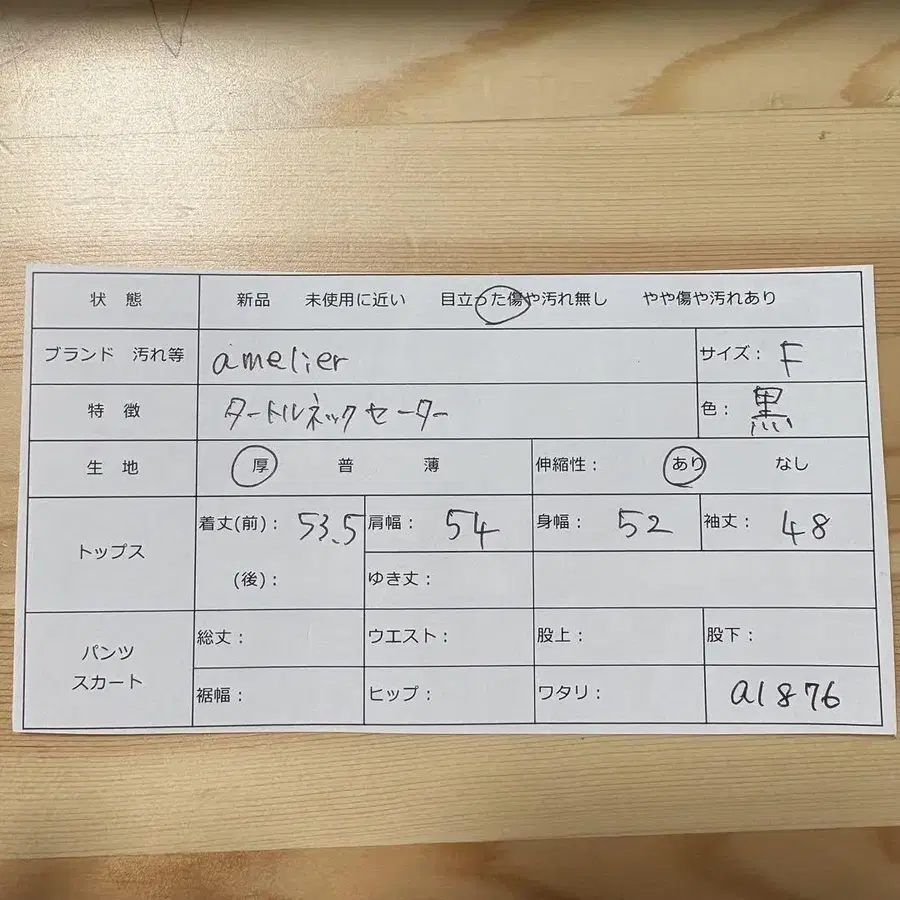 状 態 新品 未使用に近い 目立った傷や汚れ無し やや傷や汚れあり
ブランド 汚れ等 amelier サイズ: F
特 徴 タートルネックセーター 色: 黒
生 地 厚 普 薄 伸縮性: あり なし
トップス 着丈(前): 53.5 肩幅: 54 身幅: 52 袖丈: 48
(後): ゆき丈:
パンツ スカート 総丈: ウエスト: 股上: 股下:
裾幅: ヒップ: ワタリ: a1876